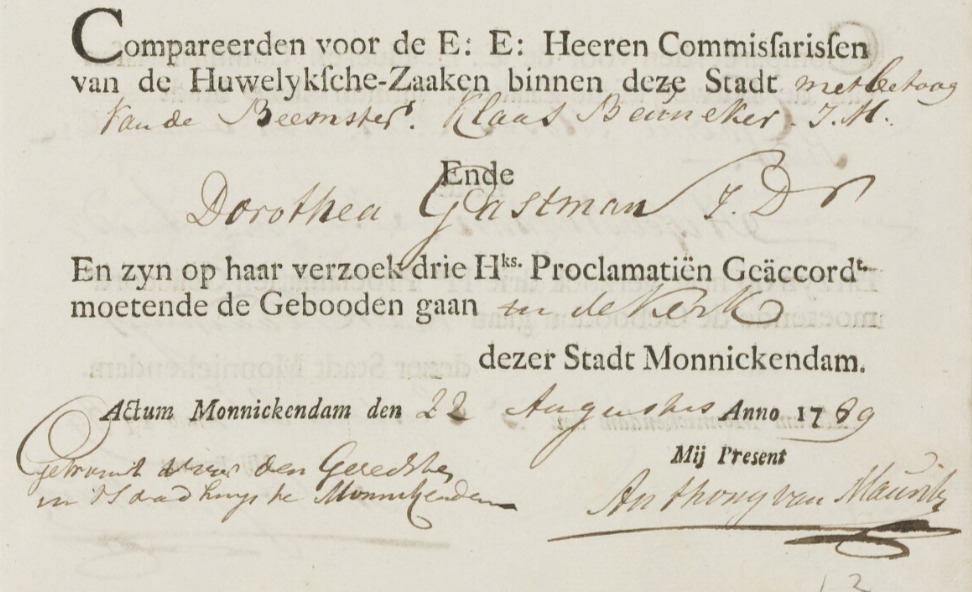 Compareerden voor de E: E: Heeren Commissarissen
van de Huwelyksche-Zaaken binnen deze Stadt met betoog
van de Beemster. Klaas Beuneker. J.M.
Ende
Dorothea Gastman J. Dr
En zyn op haar verzoek drie Hks. Proclamatiën Geäccordt.
moetende de Gebooden gaan in de Kerk
dezer Stadt Monnickendam.
Actum Monnickendam den 22 Augustus Anno 1789
Mij Present
getrouwt voor den Gerechte
in 't Raadhuys te Monnikendam
Anthony van Maurik